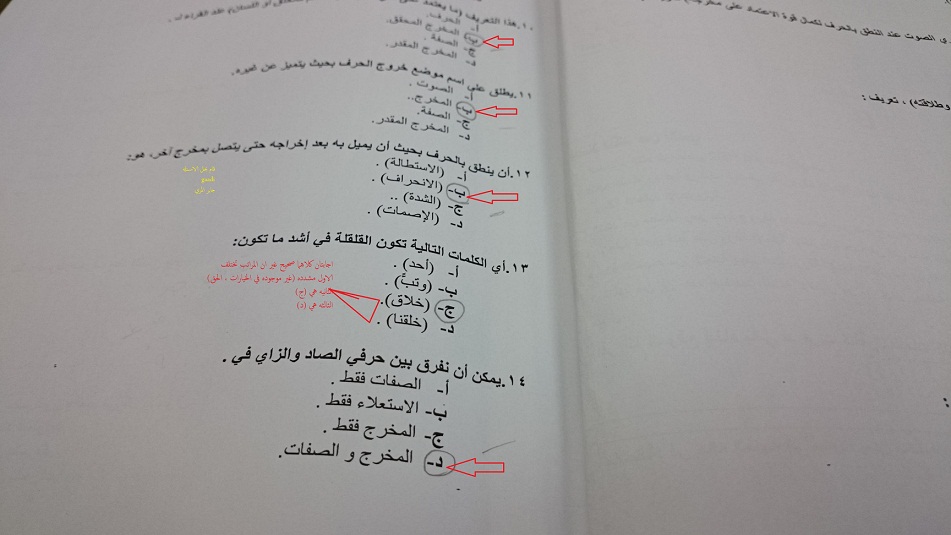 ١٠.هذا التعريف (ما يعتمد على
أ- الحرف.
ب- المخرج المحقق.
ج- الصفة .
د- المخرج المقدر.
١١.يطلق على اسم موضع خروج الحرف بحيث يتميز عن غيره.
أ- الصوت .
ب- المخرج..
ج- الصفة.
د- المخرج المقدر.
١٢.أن ينطق بالحرف بحيث أن يميل به بعد إخراجه حتى يتصل بمخرج آخر، هو:
أ- (الاستطالة) .
ب- (الانحراف) .
ج- (الشدة) ..
د- (الإصمات) .
١٣.أي الكلمات التالية تكون القلقلة في أشد ما تكون:
أ- (أحد) .
ب- (وتبَّ) .
ج- (خلاق).
د- (خلقنا) .
اجابتان كلاهما صحيح غير ان المراتب تختلف
الاول مشدده (غير موجوده في الخيارات ، الحق)
ثانيه هي (ج)
الثالثه هي (د)
١٤.يمكن أن نفرق بين حرفي الصاد والزاي في .
أ- الصفات فقط .
ب- الاستعلاء فقط .
ج- المخرج فقط .
د- المخرج و الصفات.
ي الصوت عند النطق بالحرف لكمال قوة الاعتماد على مخرجه)
وطلاقته) ، تعريف :